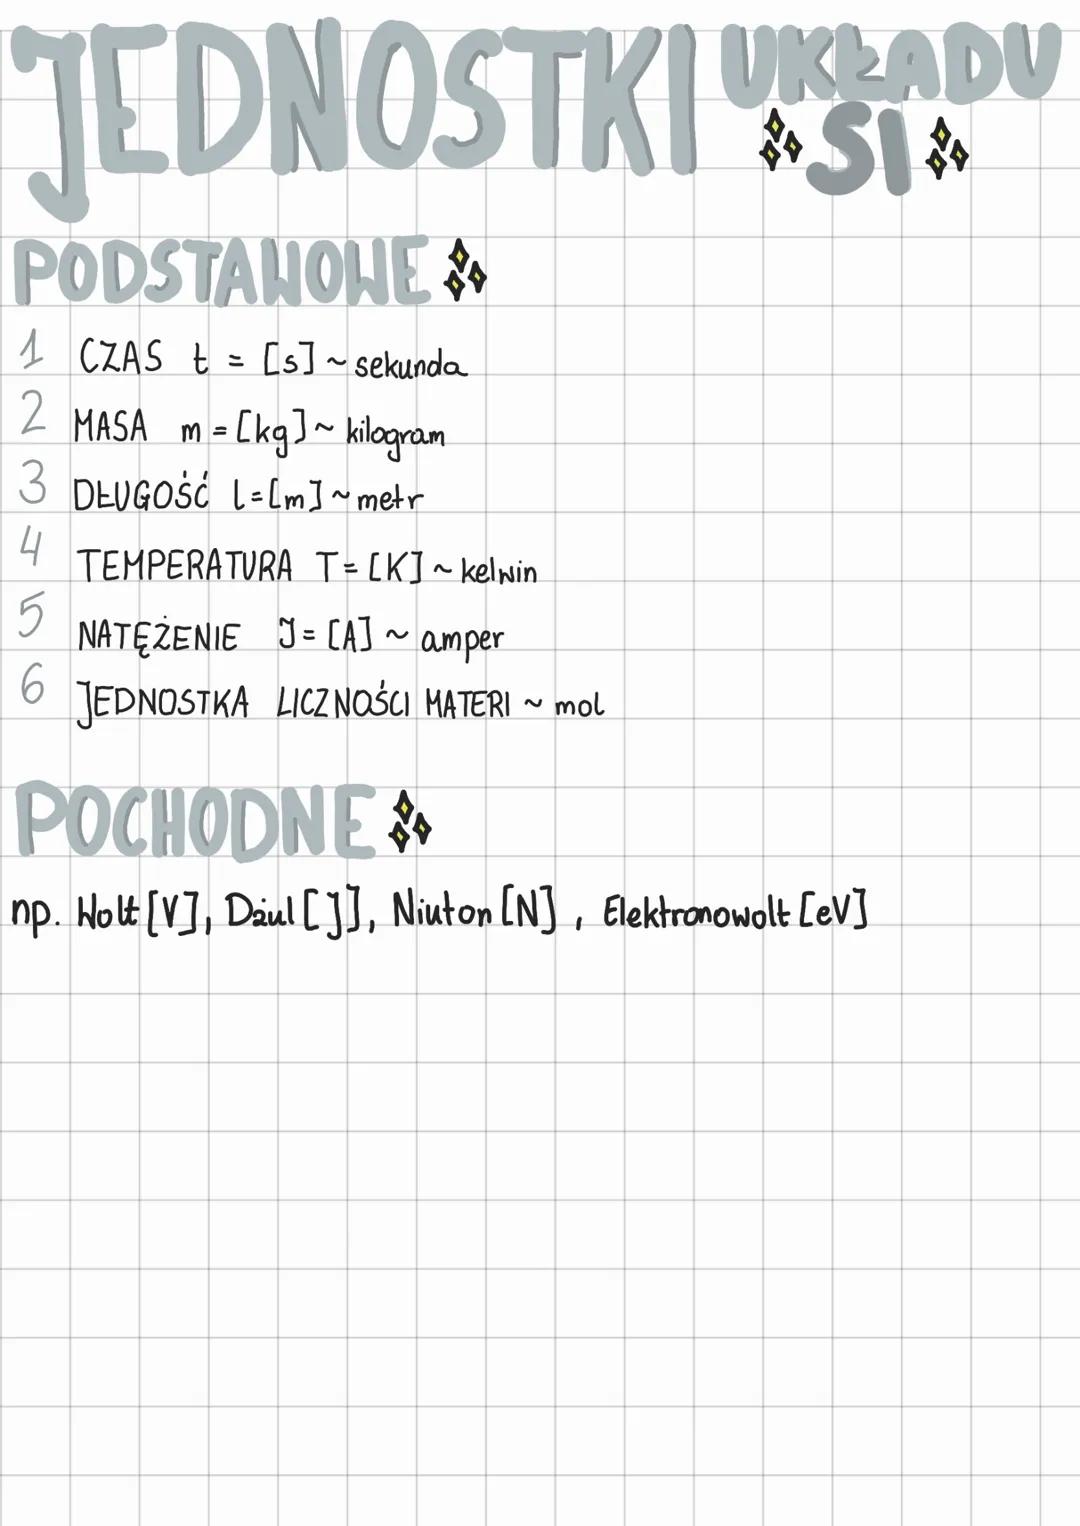 JEDNOSTKI UKŁADU
SI
PODSTAWOWE
1 CZAS t = [s] ~ sekunda
2 MASA m = [kg] ~ kilogram
3 DŁUGOŚĆ l = [m] ~ metr
4 TEMPERATURA T = [K] ~ kelwin
5 NATĘŻENIE J = [A] ~ amper
6 JEDNOSTKA LICZNOŚCI MATERI ~ mol
POCHODNE
np. Wolt [V], Dżul [J], Niuton [N], Elektronowolt [eV]